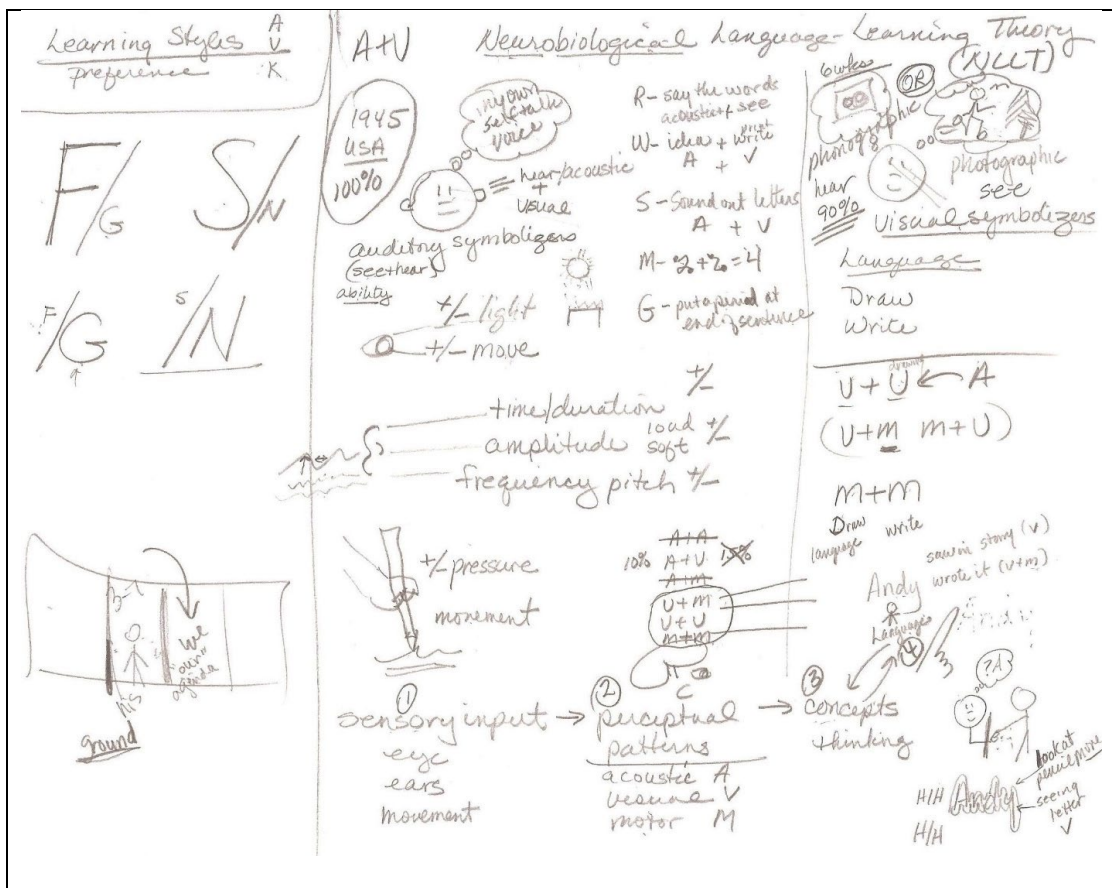 Learning Styles
A
V
K
preference
F/G
S/N
F/G
S/N
his
we
"own"
agenda
ground
A+V
Neurobiological Language-Learning Theory
(NLLT)
1945
USA
100%
my own
self talk
voice
hear/acoustic
+
visual
auditory symbolizers
(see+hear)
ability
R- say the words
acoustic + see
W- idea + write
print
A + V
S- Sound out letters
A + V
G- put a period at
end of sentence
+/- light
+/- move
+/-
time/duration
amplitude loud +/-
soft
frequency pitch +/-
+/- pressure
movement
A+A
10% A+V 15%
A+M
V+M
V+V
M+M
C
1
sensory input →
eye
ears
movement
2
perceptual →
patterns
acoustic A
visual V
motor M
3
concepts
thinking
4
Language
6wks
OR
phonographic
hear
90%
photographic
see
visual symbolizers
Language
Draw
Write
V + V ← A
drawing
(V+m m+V)
m+m
Draw write
language
Andy
saw in story (v)
wrote it (v+m)
?A
look at
pencil move
seeing
letter
V
H/H Andy
H/H